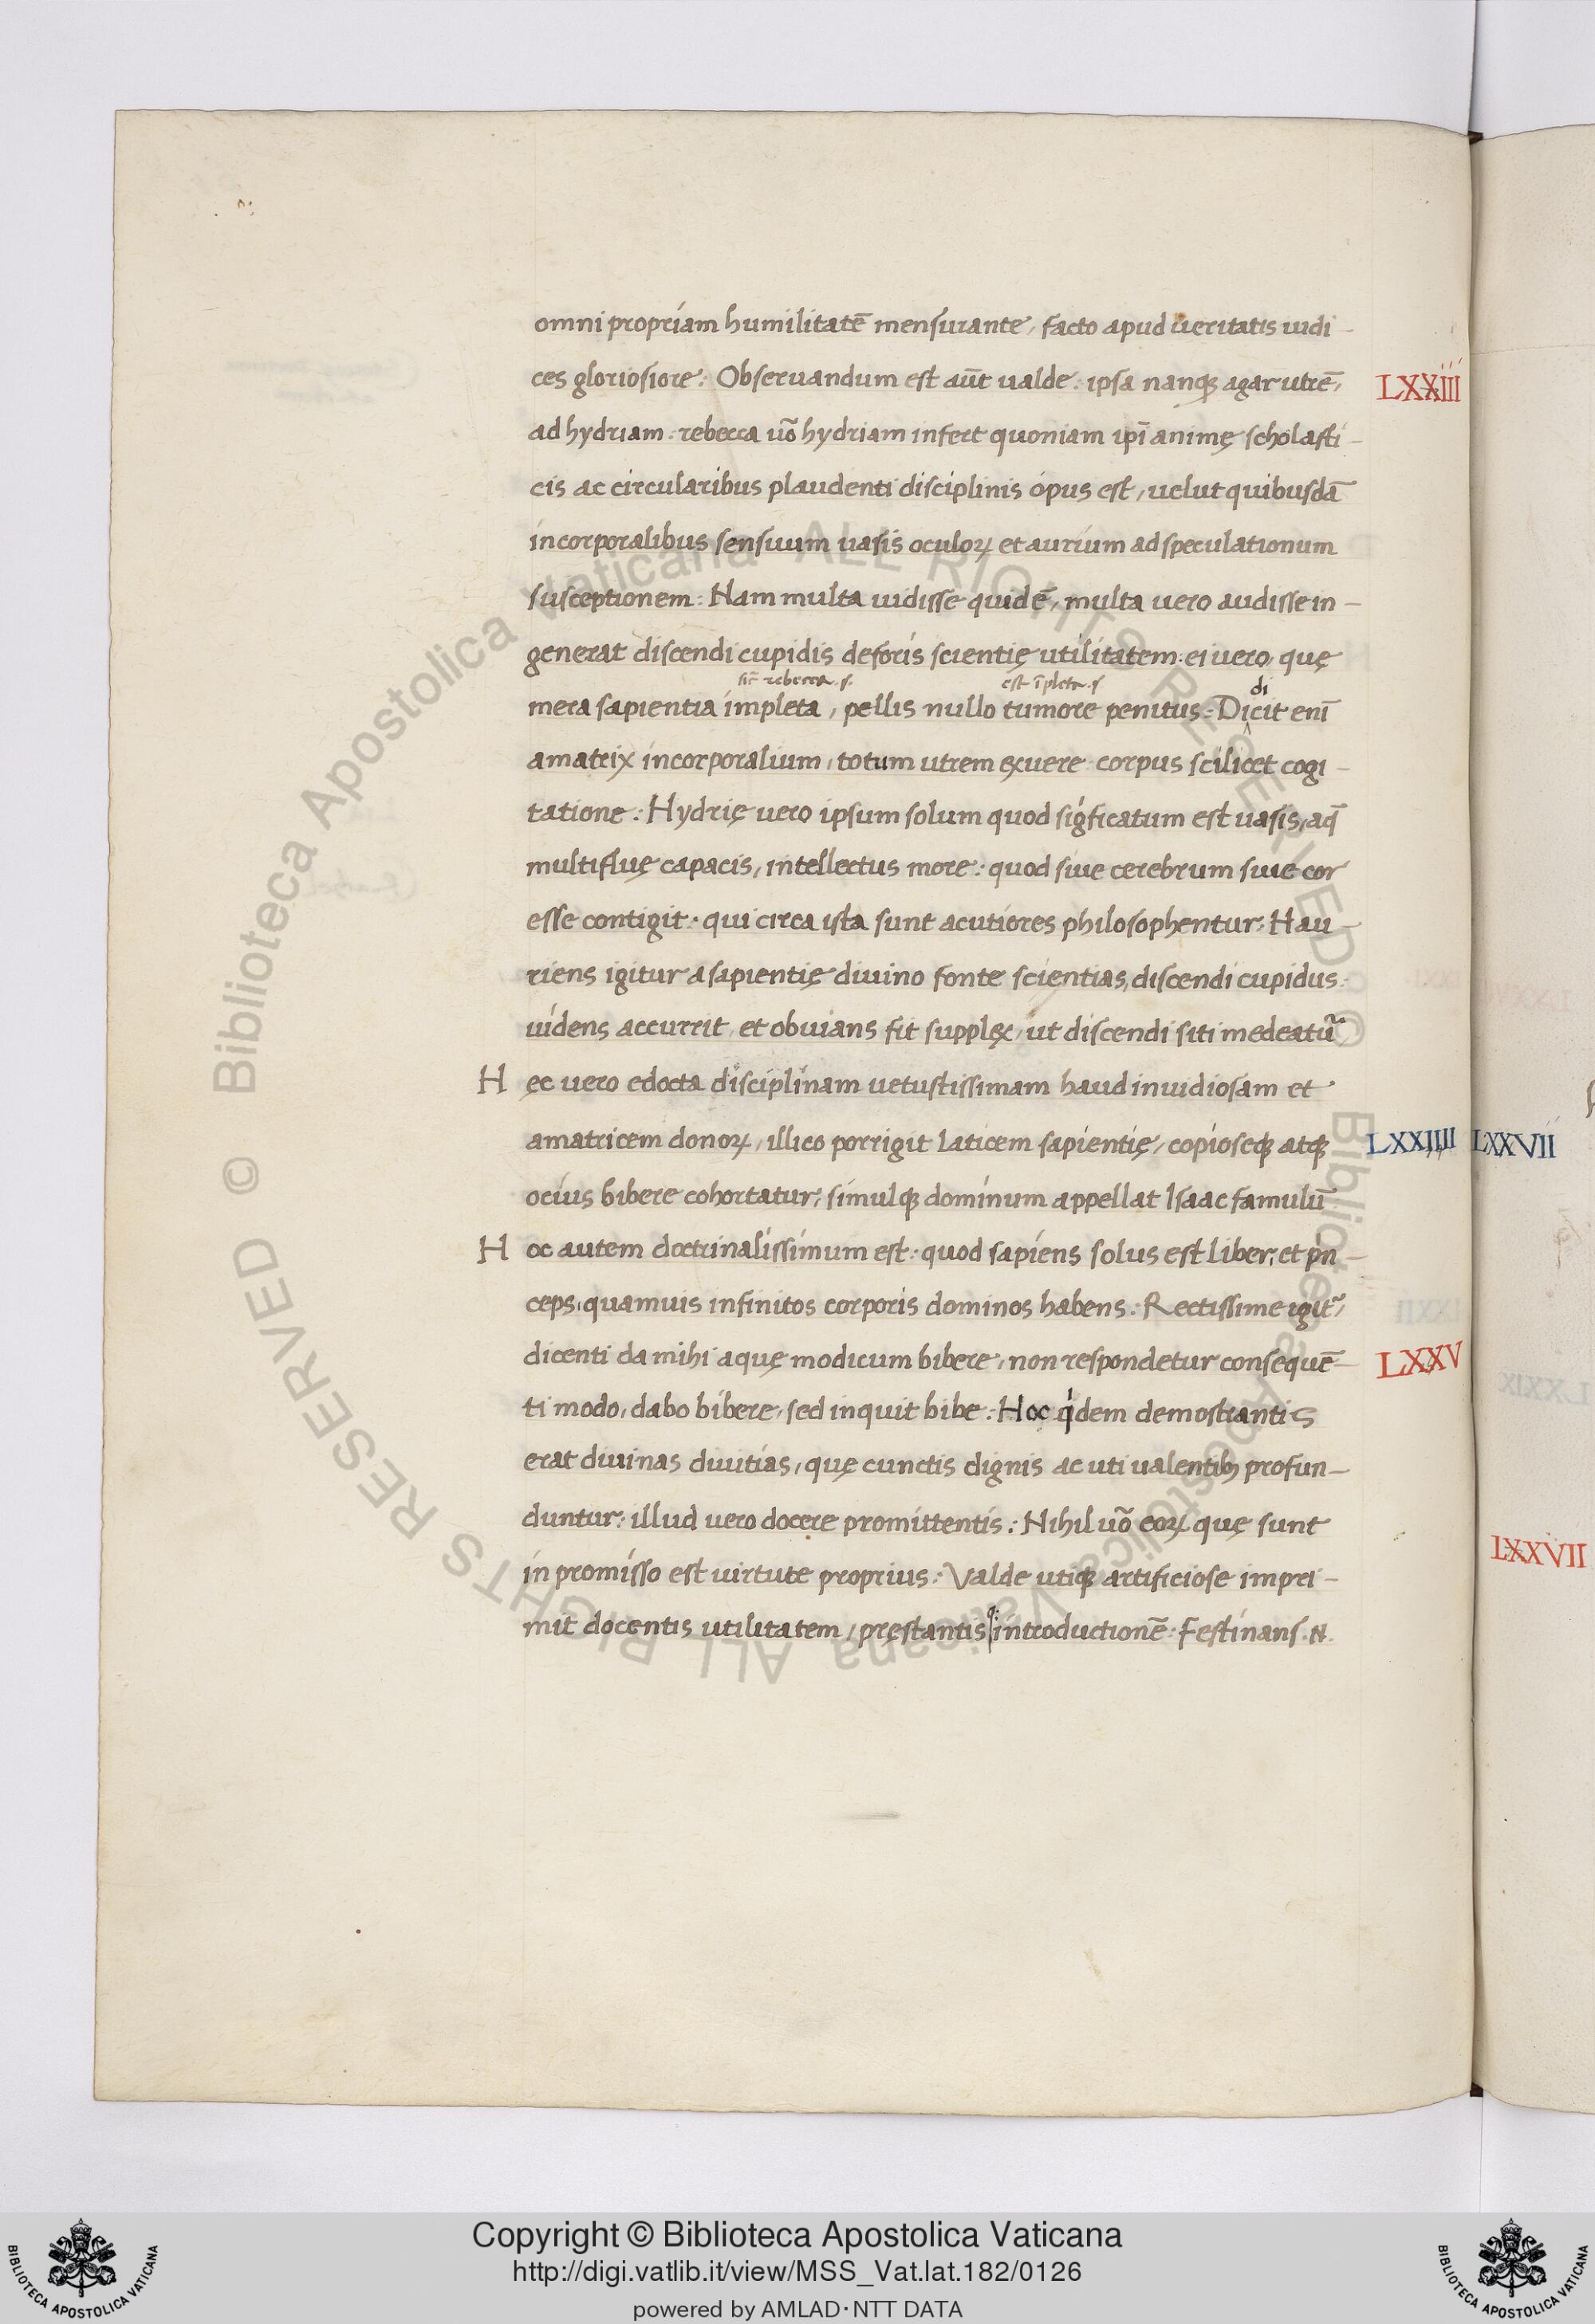 omni propriam humilitatē mensurante, facto apud ueritatis iudi-
ces gloriosiore: Obseruandum est aūt ualde: ipsa nanqꝫ agar utrē,
LXXIII
ad hydriam: rebecca uō hydriam infert quoniam ipī animę scholasti-
cis ac circularibus plaudenti disciplinis opus est, uelut quibusdā
incorporalibus sensuum uasis oculoꝝ et aurium ad speculationum
susceptionem: Nam multa uidisse quidē, multa uero audisse in-
generat discendi cupidis deforis scientię utilitatem: ei uero, quę
sic̄ rebecca .s. est īpleta .s. di
mera sapientia impleta, pellis nullo tumore penitus: Dicit enī
amatrix incorporalium, totum utrem exuere corpus scilicet cogi-
tatione: Hydrię uero ipsum solum quod sigficatum est uasis, aq̄
multifluę capacis, intellectus more: quod siue cerebrum siue cor
esse contigit: qui circa ista sunt acutiores philosophentur: Hau-
riens igitur a sapientię diuino fonte scientias, discendi cupidus
uidens accurrit, et obuians fit supplex, ut discendi siti medeatū
Hęc uero edocta disciplinam uetustissimam haud inuidiosam et
amatricem donoꝝ, illico porrigit laticem sapientię, copioseqꝫ atqꝫ
LXXIIII LXXVII
ocius bibere cohortatur, simulqꝫ dominum appellat Isaac famulū
Hoc autem doctrinalissimum est: quod sapiens solus est liber, et pn-
ceps, quamuis infinitos corporis dominos habens: Rectissime igit̄,
dicenti da mihi aquę modicum bibere, non respondetur consequē-
LXXV
ti modo, dabo bibere, sed inquit bibe: Hoc qdem demostrantis
erat diuinas diuitias, quę cunctis dignis ac uti ualentibꝫ profun-
duntur: illud uero docere promittentis: Nihil uō eoꝝ quę sunt
LXXVII
in promisso est uirtute proprius: Valde utiqꝫ artificiose impri-
mit docentis utilitatem, pręstantis introductionē: Festinans. N.
Copyright © Biblioteca Apostolica Vaticana
http://digi.vatlib.it/view/MSS_Vat.lat.182/0126
powered by AMLAD·NTT DATA